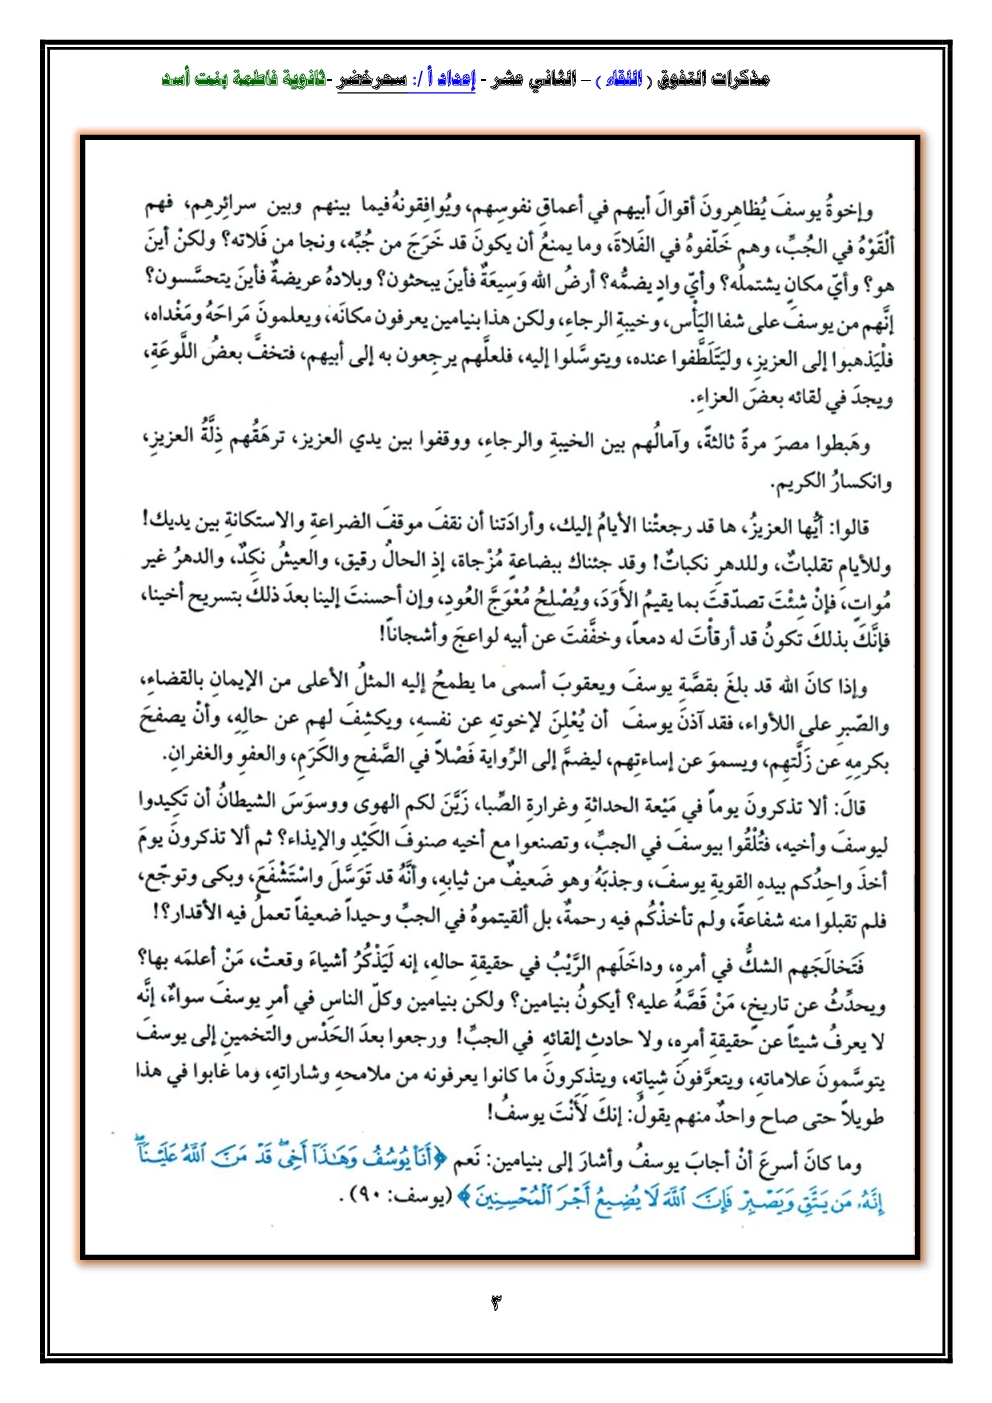 مذكرات التفوق ( اللقاء ) – الثاني عشر - إعداد أ /: سحر خضر -ثانوية فاطمة بنت أسد
وإخوةُ يوسفَ يُظاهِرونَ أقوالَ أبيهم في أعماقِ نفوسِهم، ويُوافِقونهُ فيما بينهم وبين سرائرِهِم، فهم
ألْقَوْهُ في الجُبِّ، وهم خَلّفوهُ في الفَلاةَ، وما يمنعُ أن يكونَ قد خَرَجَ من جُبِّه، ونجا من فَلاته؟ ولكنْ أينَ
هو؟ وأيّ مكانٍ يشتملُه؟ وأيّ وادٍ يضمُّه؟ أرضُ الله وَسِيعَةٌ فأينَ يبحثون؟ وبلادهُ عريضةٌ فأينَ يتحسَّسون؟
إنَّهم من يوسفَ على شفا اليَأس، وخيبةِ الرجاءِ، ولكن هذا بنيامين يعرفون مكانَه، ويعلمونَ مَراحَهُ ومَغْداه،
فلْيَذهبوا إلى العزيزِ، وليَتَلَطَّفوا عنده، ويتوسَّلوا إليه، فلعلَّهم يرجعون به إلى أبيهم، فتخفَّ بعضُ اللَّوعَةِ،
ويجدَ في لقائه بعضَ العزاءِ.
وهَبطوا مصرَ مرةً ثالثةً، وآمالُهم بين الخيبةِ والرجاءِ، ووقفوا بين يدي العزيز، ترهَقُهم ذِلَّةُ العزيزِ،
وانكسارُ الكريم.
قالوا: أيُّها العزيزُ، ها قد رجعتْنا الأيامُ إليك، وأرادَتنا أن نقفَ موقفَ الضراعةِ والاستكانةِ بين يديك!
وللأيامِ تقلباتٌ، وللدهرِ نكباتٌ! وقد جئناك ببضاعةٍ مُزْجاة، إذِ الحالُ رقيق، والعيشُ نكِدٌ، والدهرُ غير
مُواتٍ، فإنْ شِئْتَ تصدّقتَ بما يقيمُ الأَوَدَ، ويُصْلِحُ مُعْوَجَّ العُودِ، وإن أحسنتَ إلينا بعدَ ذلكَ بتسريح أخينا،
فإنَّكَ بذلكَ تكونُ قد أرقأْتَ له دمعاً، وخفَّفتَ عن أبيه لواعجَ وأشجاناً!
وإذا كانَ الله قد بلغَ بقصَّةِ يوسفَ ويعقوبَ أسمى ما يطمحُ إليه المثلُ الأعلى من الإيمانِ بالقضاءِ،
والصّبرِ على اللأواء، فقد آذنَ يوسفَ أن يُعْلِنَ لإخوتهِ عن نفسهِ، ويكشِفَ لهم عن حالِهِ، وأنْ يصفحَ
بكرمِهِ عن زَلَّتهِم، ويسموَ عن إساءتِهم، ليضمَّ إلى الرِّواية فَصْلاً في الصَّفحِ والكَرَمِ، والعفوِ والغفرانِ.
قالَ: ألا تذكرونَ يوماً في مَيْعة الحداثةِ وغرارةِ الصِّبا، زَيَّنَ لكم الهوى ووسوَسَ الشيطانُ أن تَكِيدوا
ليوسفَ وأخيه، فتُلْقُوا بيوسفَ في الجبِّ، وتصنعوا مع أخيه صنوفَ الكَيْدِ والإيذاء؟ ثم ألا تذكرونَ يومَ
أخذَ واحِدُكم بيدهِ القويةِ يوسفَ، وجذبَهُ وهو ضَعيفٌ من ثيابهِ، وأنَّهُ قد تَوَسَّلَ واسْتَشْفَعَ، وبكى وتوجّع،
فلم تقبلوا منه شفاعةً، ولم تأخذْكُم فيه رحمةٌ، بل ألقيتموهُ في الجبِّ وحيداً ضعيفاً تعملُ فيه الأقدار؟!
فَتَخالَجَهم الشكُّ في أمرِهِ، وداخَلَهم الرَّيْبُ في حقيقةِ حالهِ، إنه لَيَذْكُرُ أشياءَ وقعتْ، مَنْ أعلمَه بها؟
ويحدِّثُ عن تاريخٍ، مَنْ قَصَّهُ عليه؟ أيكونُ بنيامين؟ ولكن بنيامين وكلّ الناسِ في أمرِ يوسفَ سواءٌ، إنَّه
لا يعرفُ شيئاً عن حقيقةِ أمرِه، ولا حادثِ إلقائهِ في الجبِّ! ورجعوا بعدَ الحَدْس والتخمينِ إلى يوسفَ
يتوسَّمونَ علاماته، ويتعرَّفونَ شِياتِه، ويتذكرونَ ما كانوا يعرفونه من ملامحهِ وشاراتهِ، وما غابوا في هذا
طويلاً حتى صاح واحدٌ منهم يقولُ: إنكَ لَأَنْتَ يوسفُ!
وما كانَ أسرعَ أنْ أجابَ يوسفُ وأشارَ إلى بنيامين: نَعم ﴿أَنَا۠ يُوسُفُ وَهَـٰذَآ أَخِىۖ قَدْ مَنَّ ٱللَّهُ عَلَيْنَآۖ
إِنَّهُۥ مَن يَتَّقِ وَيَصْبِرْ فَإِنَّ ٱللَّهَ لَا يُضِيعُ أَجْرَ ٱلْمُحْسِنِينَ﴾ (يوسف: ٩٠) .
٣